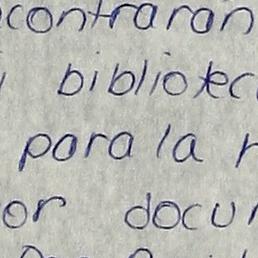 contraran
bibliotec
para la r
or docu